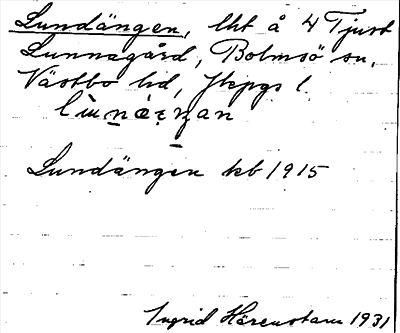 Lundängen, lht å 4 Tjust
Lunnagård, Bolmsö sn,
Västbo hd, Jkpgs l.
Lundängen kb 1915
Ingrid Härenstam 1931